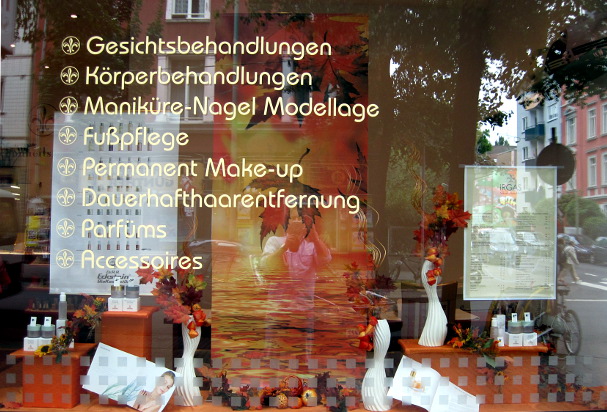 Gesichtsbehandlungen
Körperbehandlungen
Maniküre-Nagel Modellage
Fußpflege
Permanent Make-up
Dauerhafthaarentfernung
Parfüms
Accessoires